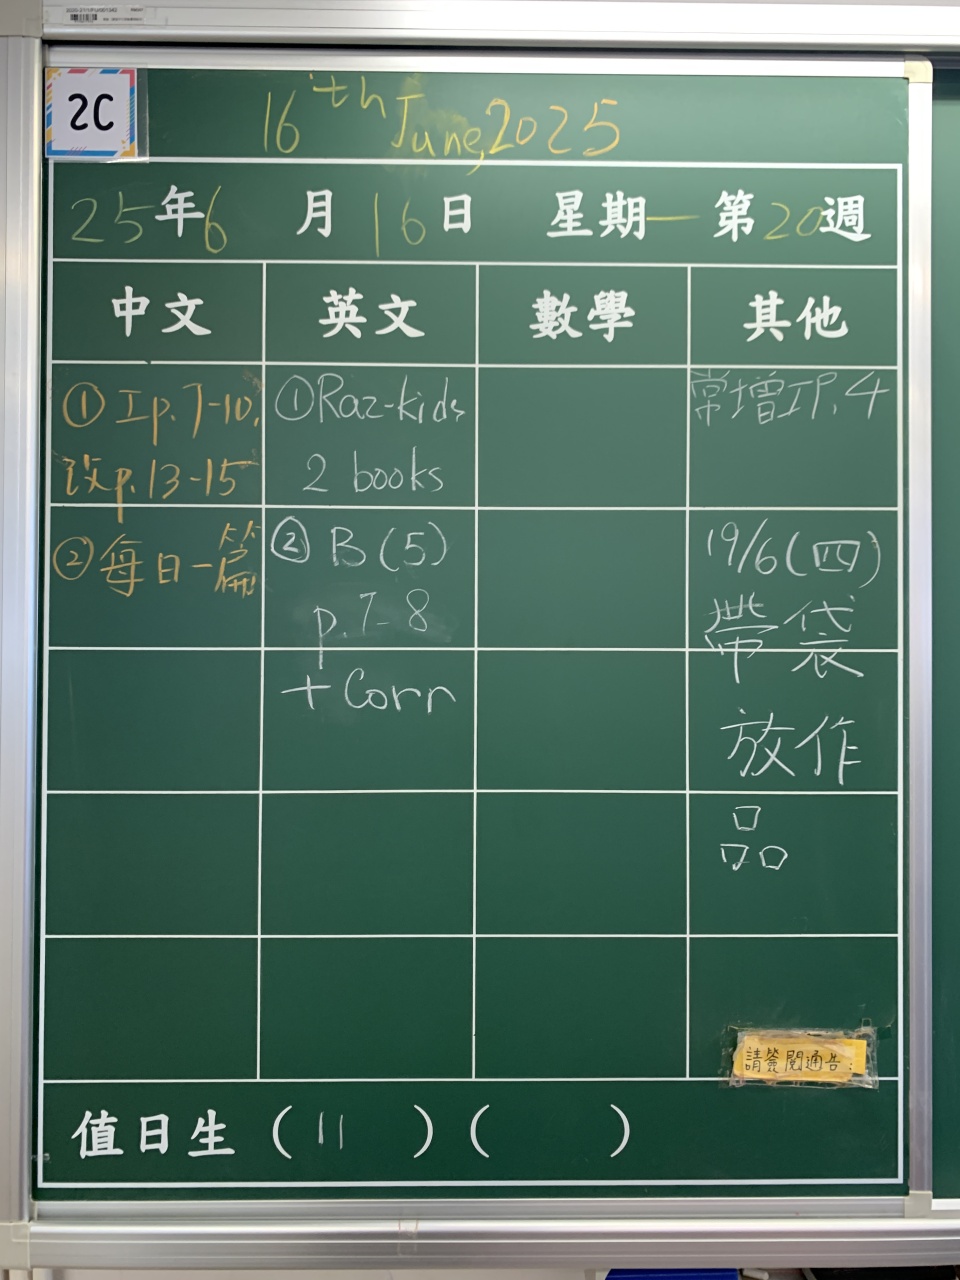 2C
16th June, 2025
25年6月16日 星期一 第20週
中文 英文 數學 其他
①工p.7-10,
改p.13-15
②每日一篇
①Raz-kids
2 books
② B(5)
p.7-8
+Corr
常增工P.4
19/6(四)
帶袋
放作
品
請簽閱通告:
值日生 (11 ) ( )